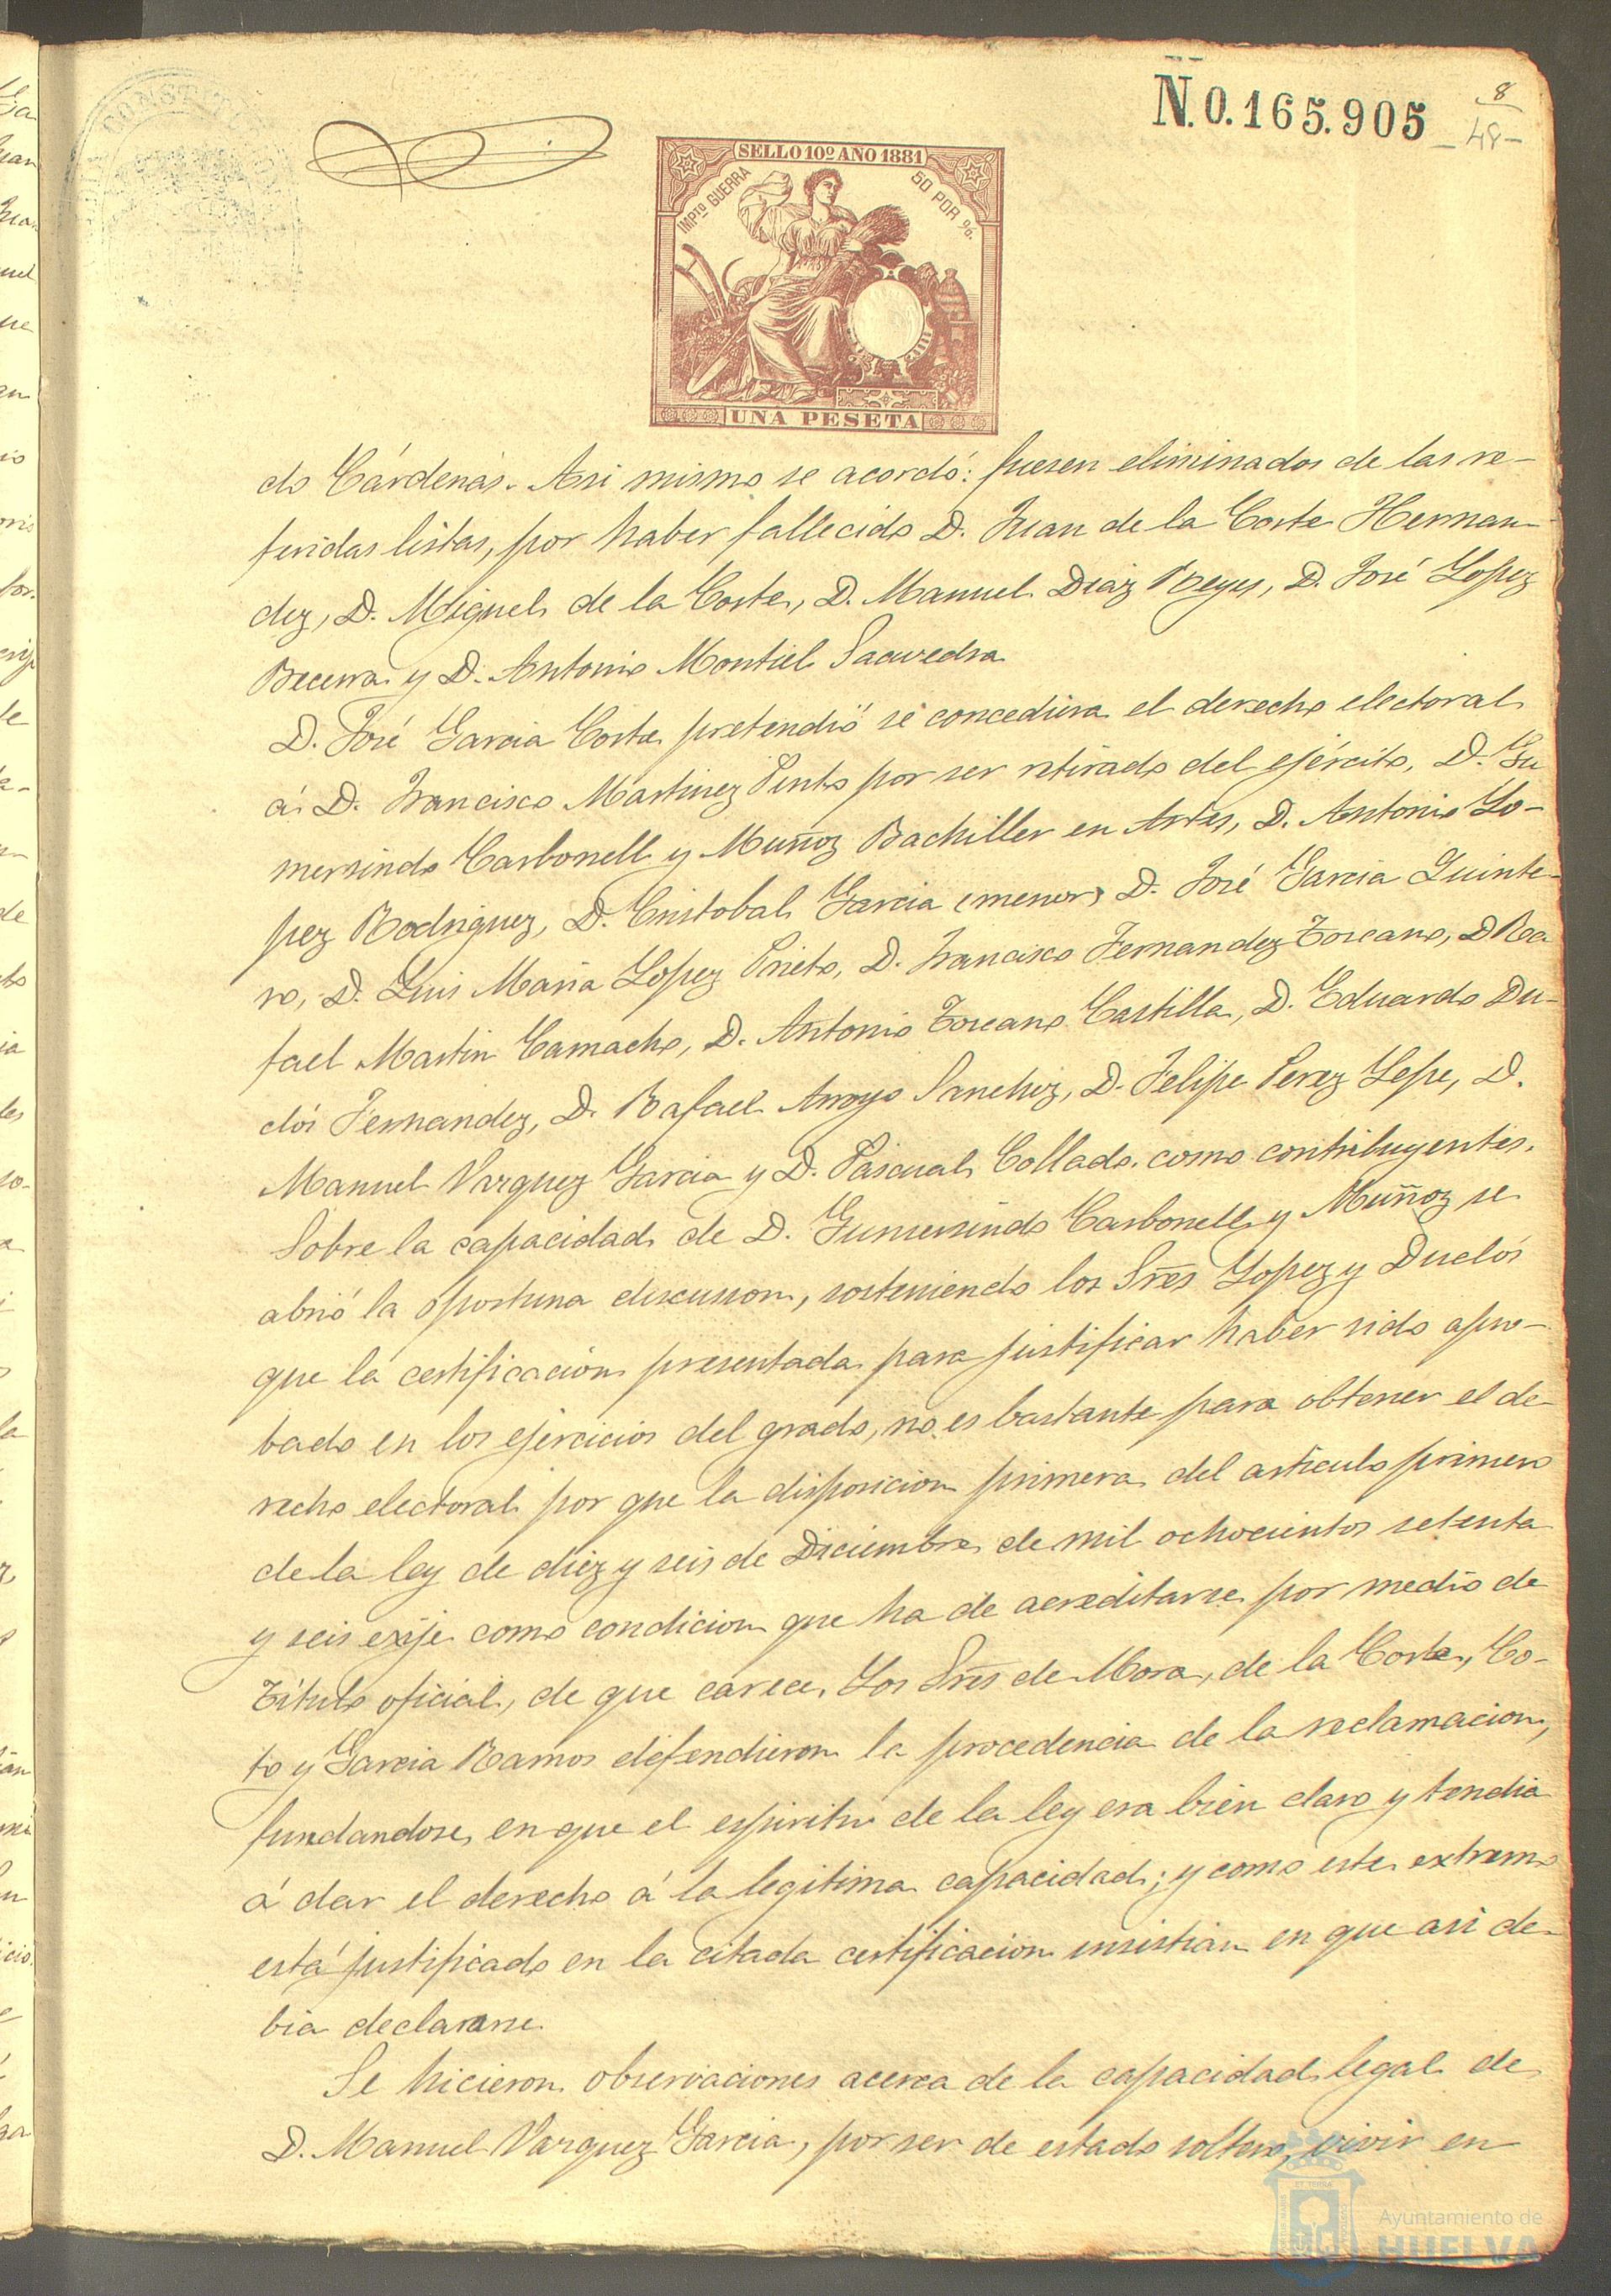 N.0.165.905
8
48-
CONSTITU
SELLO 10º AÑO 1881
IMPTO GUERRA
50 POR %.
UNA PESETA
do Cárdenas. Asi mismo se acordó: fuesen eliminados de las re-
feridas listas, por haber fallecido D. Juan de la Corte Hernan-
dez, D. Miguel de la Corte, D. Manuel Diaz Reyes, D. José Lopez
Becerra y D. Antonio Montiel Saavedra
D. José Garcia Corte pretendió se concediera el derecho electoral
á D. Francisco Martinez Pinto por ser retirado del ejército, D. Gu
mersindo Carbonell y Muñoz Bachiller en Artes, D. Antonio Lo-
pez Rodriguez, D. Cristobal Garcia (menor) D. José Garcia Quinte-
ro, D. Luis Maria Lopez Prieto, D. Francisco Fernandez Toscano, D Ra
fael Martin Camacho, D. Antonio Toscano Castilla, D. Eduardo Du-
clós Fernandez, D. Rafael Arroyo Sanchez, D. Felipe Perez Lepe, D.
Manuel Vazquez Garcia y D. Pascual Collado. como contribuyentes.
Sobre la capacidad de D. Gumersindo Carbonell y Muñoz se
abrió la oportuna discusion, sosteniendo los Sres Lopez y Duclós
que la certificacion presentada para justificar haber sido apro-
bado en los ejercicios del grado, no es bastante para obtener el de-
recho electoral por que la disposicion primera del articulo primero
de la ley de diez y seis de Diciembre de mil ochocientos setenta
y seis exije como condicion que ha de acreditarse por medio de
Título oficial, de que carece. Los Sres de Mora, de la Corte, Co-
to y Garcia Ramos defendieron la procedencia de la reclamacion,
fundandose, en que el espiritu de la ley era bien claro y tendia
á dar el derecho á la legitima capacidad; y como este extremo
está justificado en la citada certificacion insistian en que asi de-
bia declararse.
Se hicieron observaciones acerca de la capacidad legal de
D. Manuel Vazquez Garcia, por ser de estado soltero, vivir en
Ayuntamiento de
HUELVA